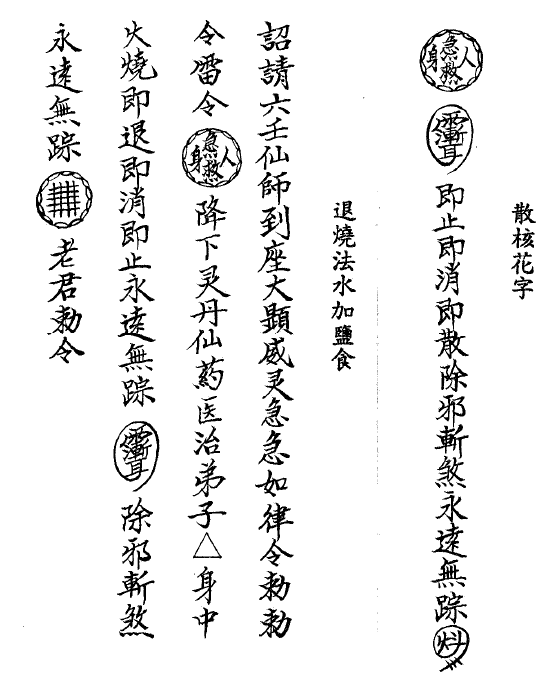 散核花字
急救人身 即止即消即散除邪斬煞永遠無踪
退燒法水加鹽食
詔請六壬仙師到座大顯威灵急急如律令勅勅
令雷令 急救人身 降下灵丹仙药医治弟子△身中
火燒即退即消即止永遠無踪 除邪斬煞
永遠無踪 老君勅令